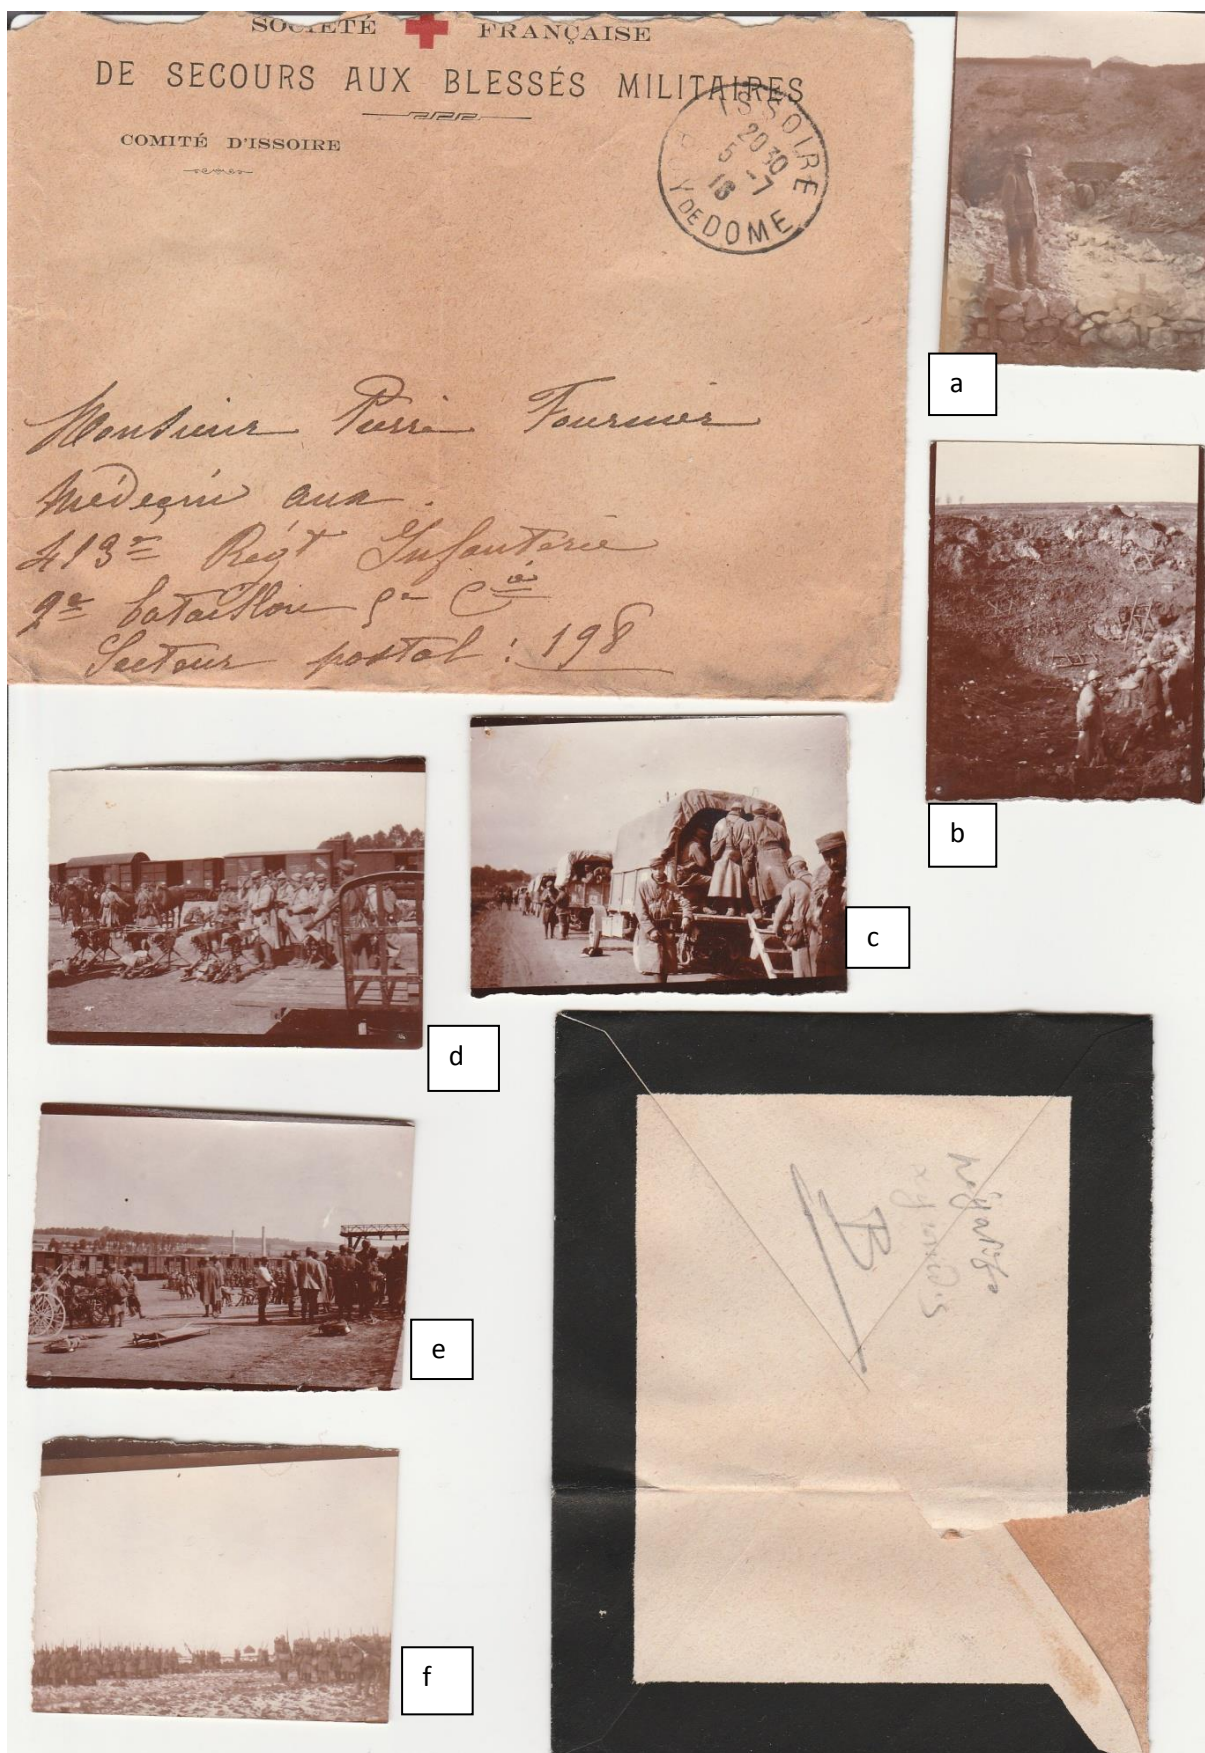 SOCIÉTÉ FRANÇAISE
DE SECOURS AUX BLESSÉS MILITAIRES
COMITÉ D'ISSOIRE
ISSOIRE
20 30
5 - 7
16
PUY DE DOME
Monsieur Pierre Fournier
Médecin aux
413e Régt Infanterie
2e bataillon 5e Cie
Secteur postal : 198
a
b
c
d
e
f
Négatifs
B